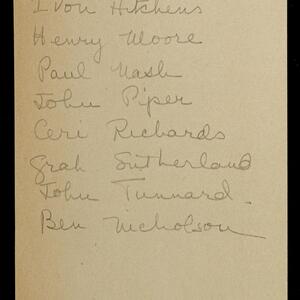 Ivon Hitchens
Henry Moore
Paul Nash
John Piper
Ceri Richards
Grah Sutherland
John Tunnard.
Ben Nicholson